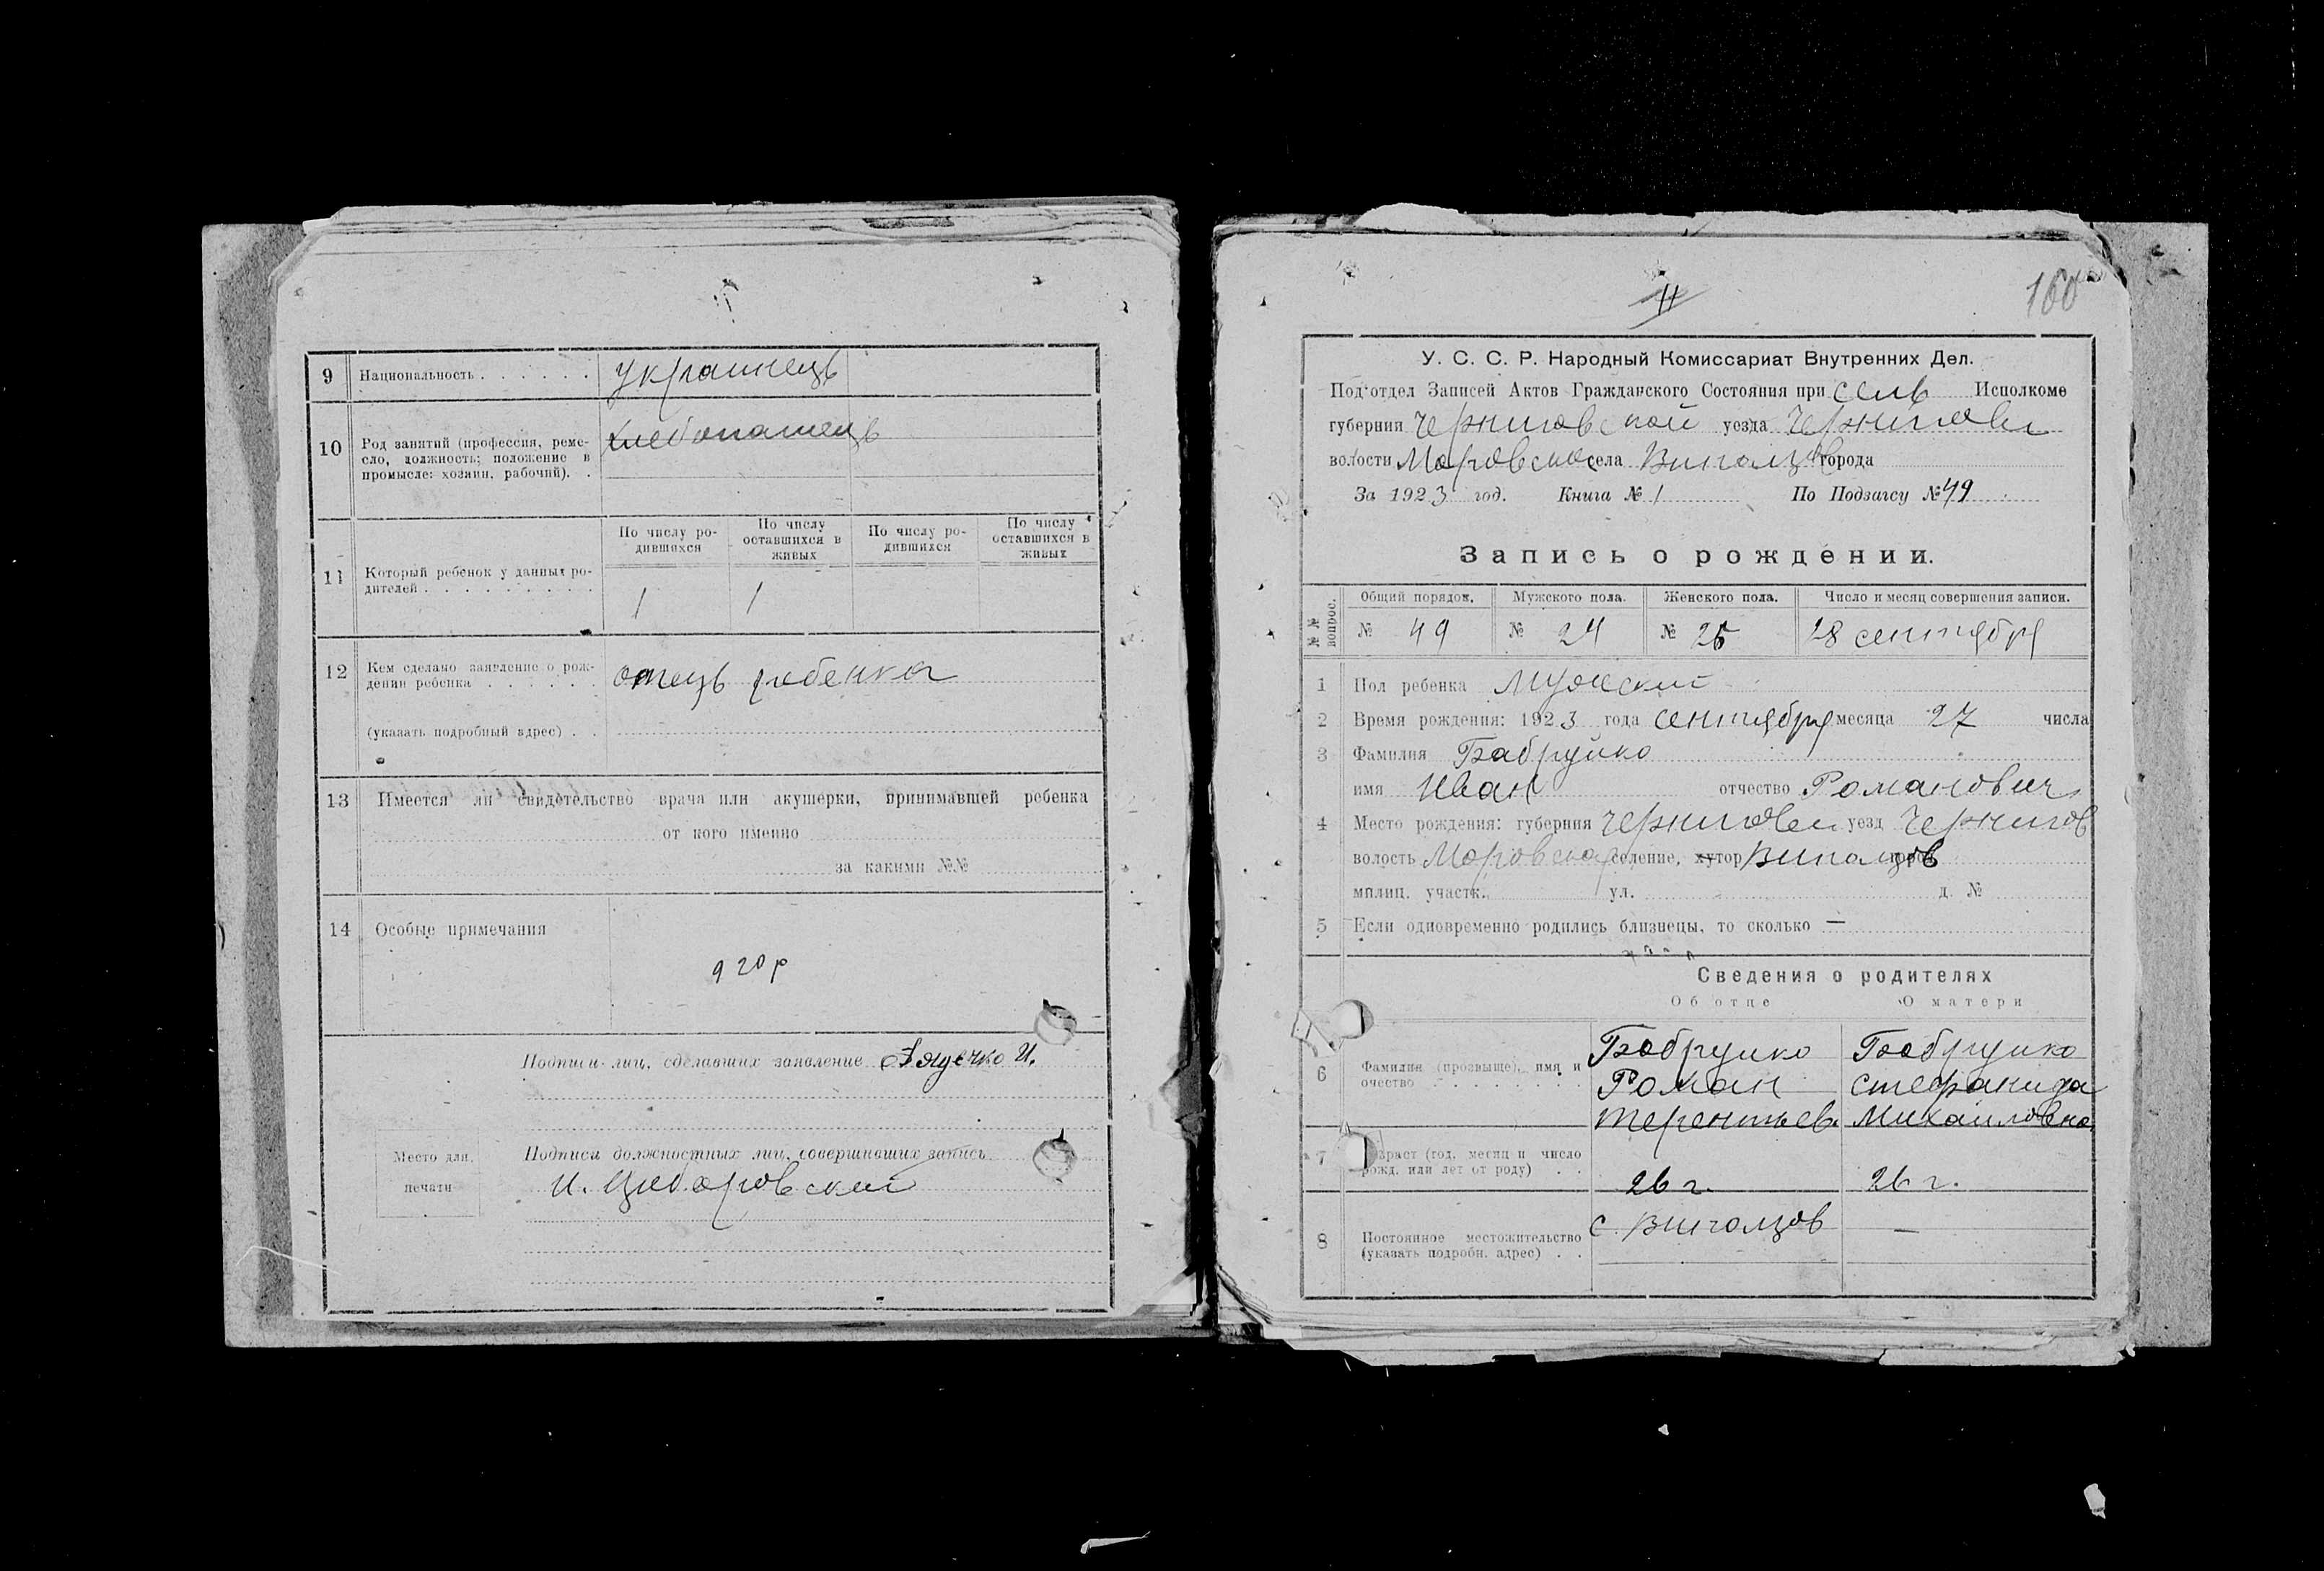 9 Национальность . . . . . . украинець
10 Род занятий (профессия, реме-
сло, должность; положение в
промысле: хозяин, рабочий). .
хлебопашець
11 Который ребенок у данных ро-
дителей . . . . . . . . .
По числу ро-
дившихся
По числу
оставшихся в
живых
По числу ро-
дившихся
По числу
оставшихся в
живых
1 1
12 Кем сделано заявление о рож-
дении ребенка . . . . . . отець ребенка
(указать подробный адрес) . .
13 Имеется ли свидетельство врача или акушерки, принимавшей ребенка
от кого именно
за какими №№
14 Особые примечания
920р
Подписи лиц, сделавших заявление И.
Место для
печати
Подписи должностных лиц, совершивших запись
И.
160
11
У. С. С. Р. Народный Комиссариат Внутренних Дел.
Под‘отдел Записей Актов Гражданского Состояния при Сель Исполкоме
губернии Черниговской уезда Чернигови
волости Моровской села Виползов города
За 1923 год. Книга № 1 По Подзагсу № 49
Запись о рождении.
№№ вопрос.
Общий порядок. Мужского пола. Женского пола. Число и месяц совершения записи.
№ 49 № 24 № 25 28 сентября
1 Пол ребенка Мужский
2 Время рождения: 1923 года сентября месяца 27 числа
3 Фамилия Бабруйко
имя Иван отчество Романович
4 Место рождения: губерния Чернигови уезд Чернигов
волость Моровская селение, хутор Виползов город
милиц. участк. ул. д. №
5 Если одновременно родились близнецы, то сколько —
Сведения о родителях
Об отце О матери
6 Фамилия (прозвыще), имя и
очество . . . . . . . .
Бабруйко
Роман
Терентьев.
Бабруйко
Стефанида
Михайловна
7 Возраст (год, месяц и число
рожд. или лет от роду) . .
26 г. 26 г.
8 Постоянное местожительство
(указать подробн. адрес) . .
с. Виползов —